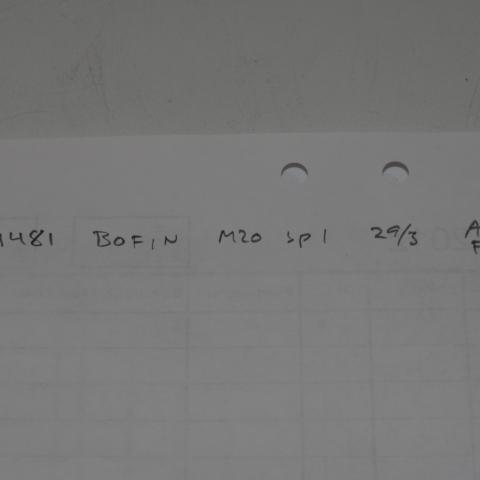 1481 BOFIN M20 SP1 29/3